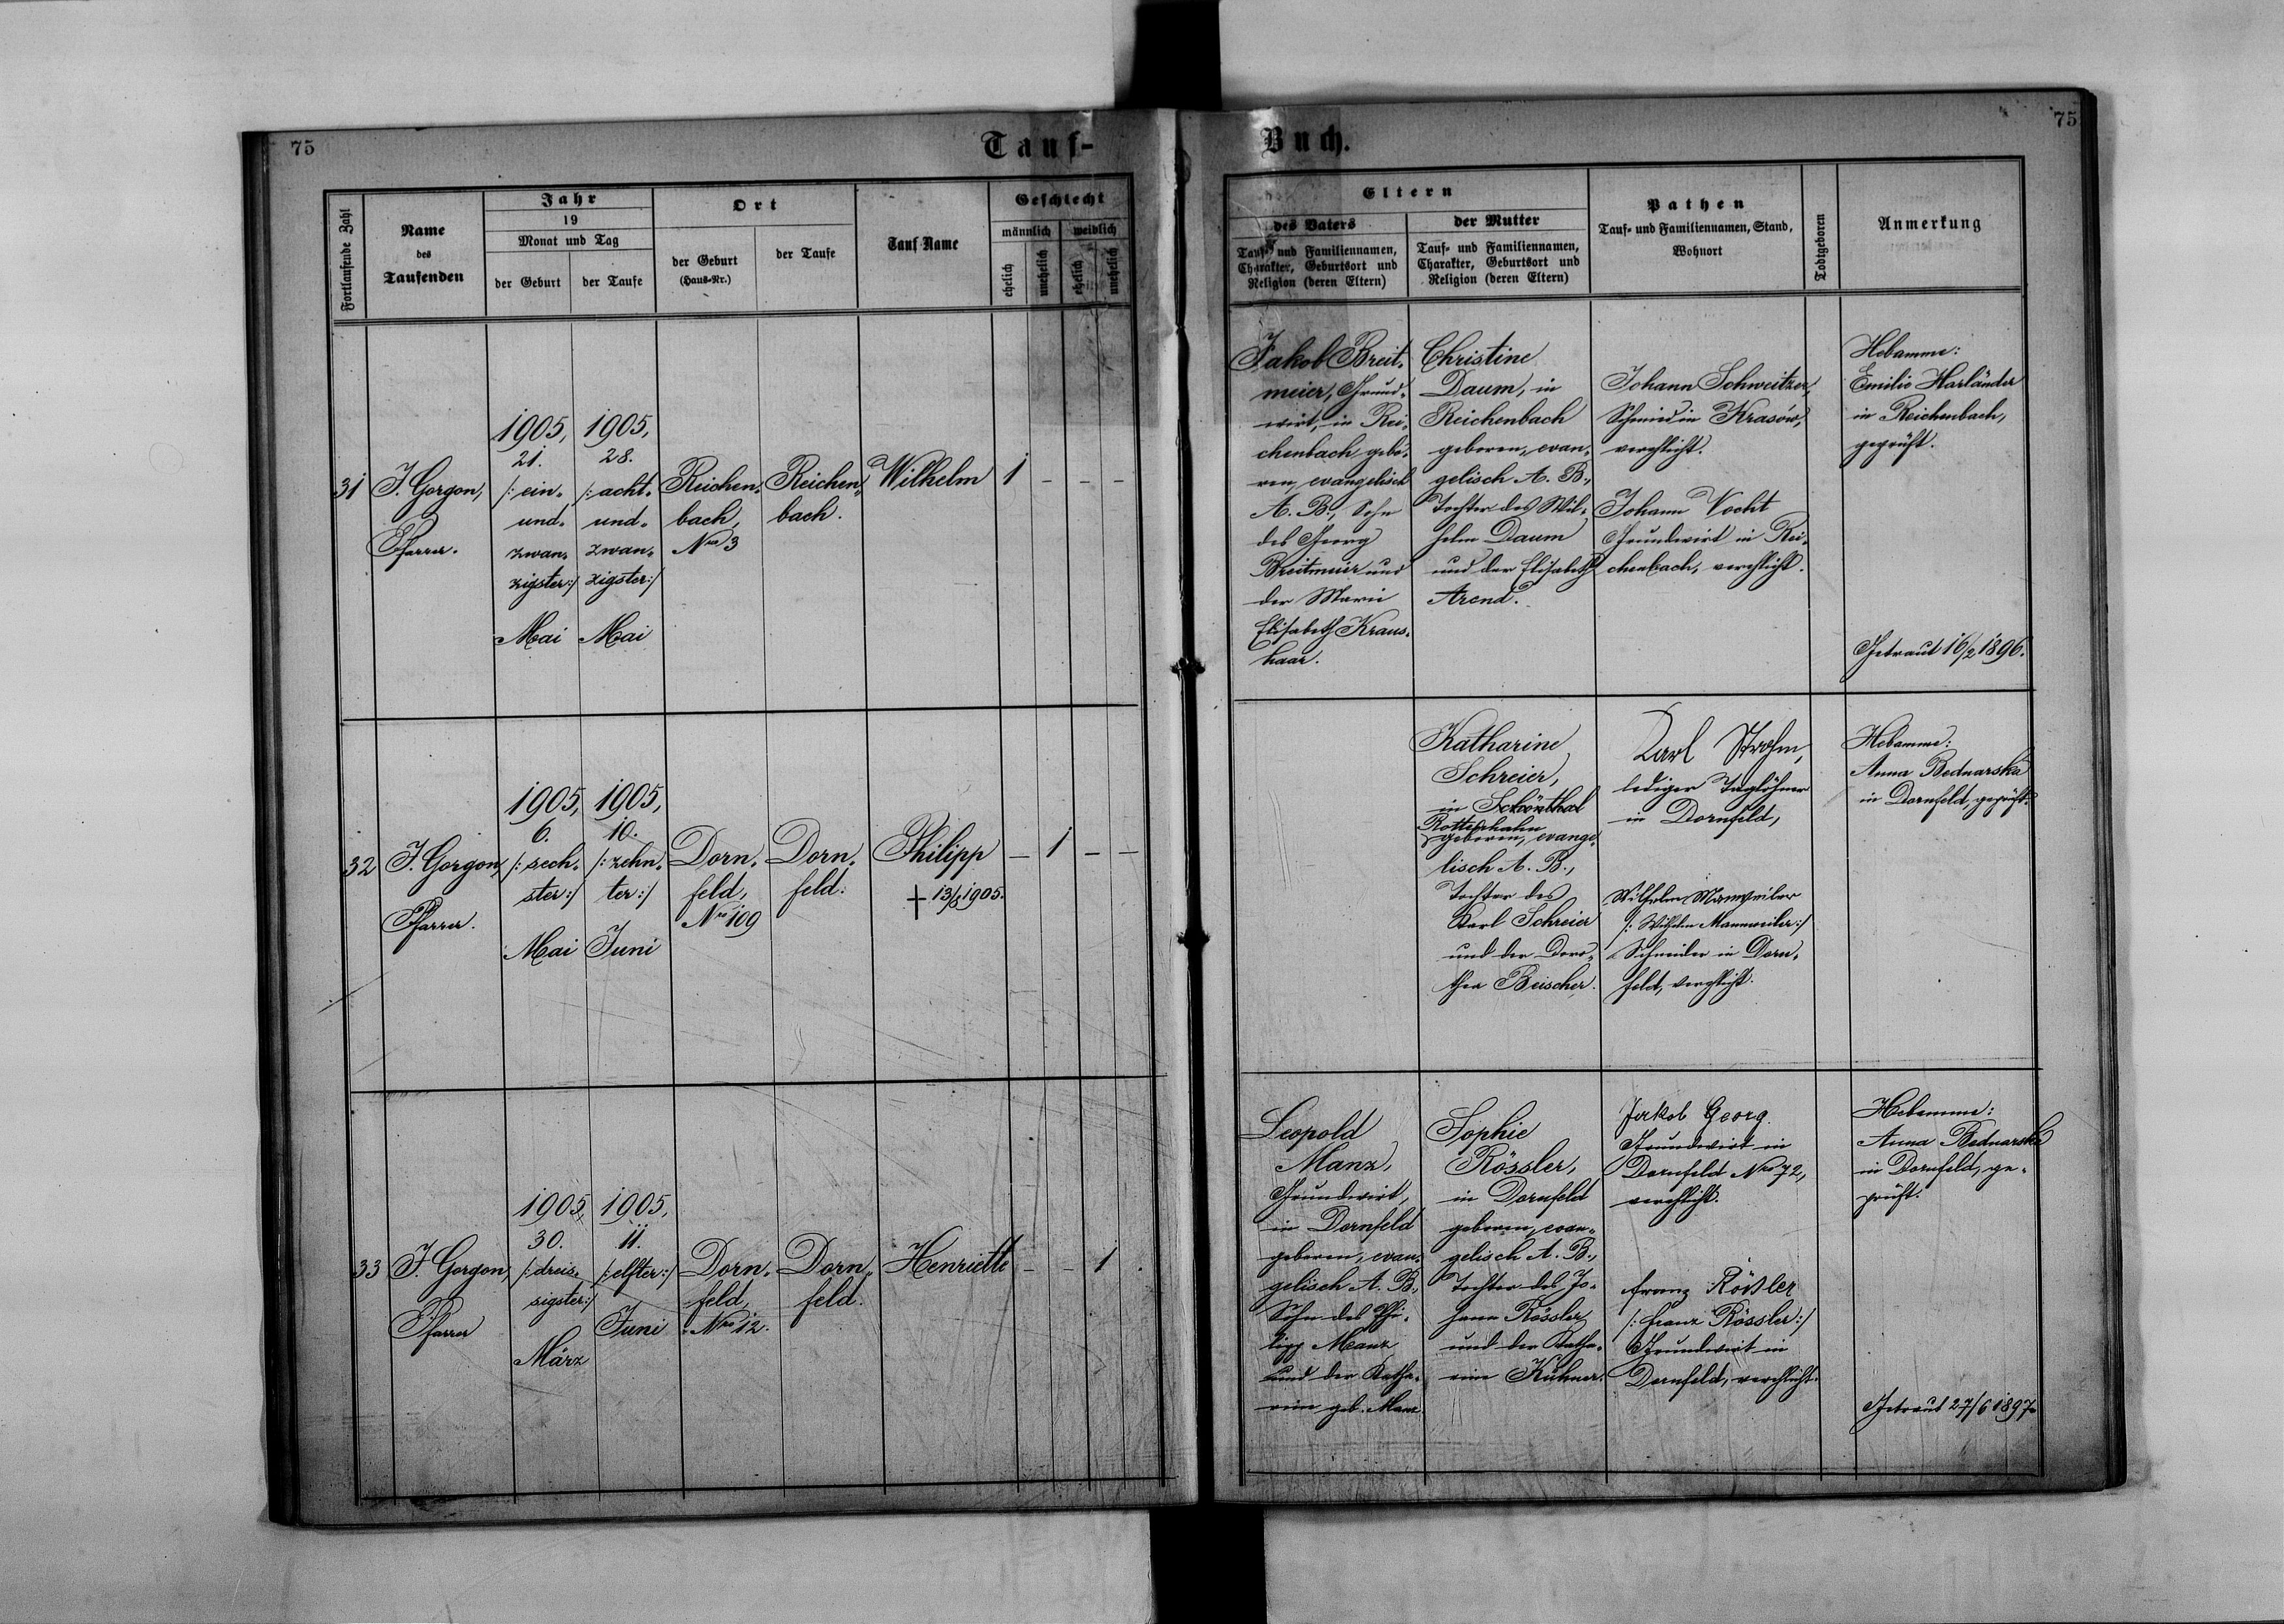 75
Tauf-
Buch.
75
Fortlaufende Zahl
Name
des
Taufenden
Jahr
19
Monat und Tag
der Geburt
der Taufe
Ort
der Geburt
(Haus-Nr.)
der Taufe
Tauf-Name
Geschlecht
männlich
weiblich
ehelich
unehelich
ehelich
unehelich
Eltern
des Vaters
Tauf- und Familiennamen,
Charakter, Geburtsort und
Religion (deren Eltern)
der Mutter
Tauf- und Familiennamen,
Charakter, Geburtsort und
Religion (deren Eltern)
Pathen
Tauf- und Familiennamen, Stand,
Wohnort
Todtgeboren
Anmerkung
31
J. Gorgon,
Pfarrer.
1905,
21.
/: ein-
und-
zwan-
zigster:/
Mai
1905,
28.
/: acht-
und-
zwan-
zigster:/
Mai
Reichen-
bach,
Nro 3
Reichen-
bach.
Wilhelm
1
-
-
-
Jakob Breit-
meier, Grund-
wirt, in Rei-
chenbach gebo-
ren, evangelisch
A. B., Sohn
des Georg
Breitmeier und
der Marie
Elisabeth Kraus-
haar.
Christine
Daum, in
Reichenbach
geboren, evan-
gelisch A. B.,
Tochter des Wil-
helm Daum
und der Elisabeth
Arend.
Johann Schweitzer,
Schmied in Krasów,
verehlicht.
Johann Vocht
Grundwirt in Rei-
chenbach, verehlicht.
Hebamme:
Emilie Harländer
in Reichenbach,
geprüft.
Getraut 16/2 1896.
32
J. Gorgon,
Pfarrer.
1905,
6.
/: sech-
ster:/
Mai
1905,
10.
/: zehn-
ter:/
Juni
Dorn-
feld,
Nro 109
Dorn-
feld.
Philipp
+ 13/6 1905.
-
1
-
-
Katharine
Schreier,
in Schönthal
Rottenhahn
geboren, evange-
lisch A. B.,
Tochter des
Karl Schreier
und der Doro-
thea Beischer.
Karl Strohm,
lediger Taglöhner
in Dornfeld,
Wilhelm Manweiler
/: Wilhelm Mannweiler:/
Schneider in Dorn-
feld, verehlicht.
Hebamme:
Anna Bednarska
in Dornfeld, geprüft.
33
J. Gorgon,
Pfarrer
1905,
30.
/: dreis-
sigster:/
März
1905,
11.
/: elfter:/
Juni
Dorn-
feld,
Nro 12.
Dorn-
feld.
Henriette
-
-
1
.
Leopold
Manz,
Grundwirt,
in Dornfeld
geboren, evan-
gelisch A. B.,
Sohn des Phi-
lipp Manz
und der Katha-
rine geb. Manz.
Sophie
Rössler,
in Dornfeld
geboren, evan-
gelisch A. B.,
Tochter des Jo-
hann Rössler
und der Katha-
rine Kühner.
Jakob Georg
Grundwirt in
Dornfeld Nro 72,
verehlicht.
Franz Rößler
/: Franz Rössler:/
Grundwirt in
Dornfeld, verehlicht.
Hebamme:
Anna Bednarska
in Dornfeld, ge-
prüft.
Getraut 27/6 1897.